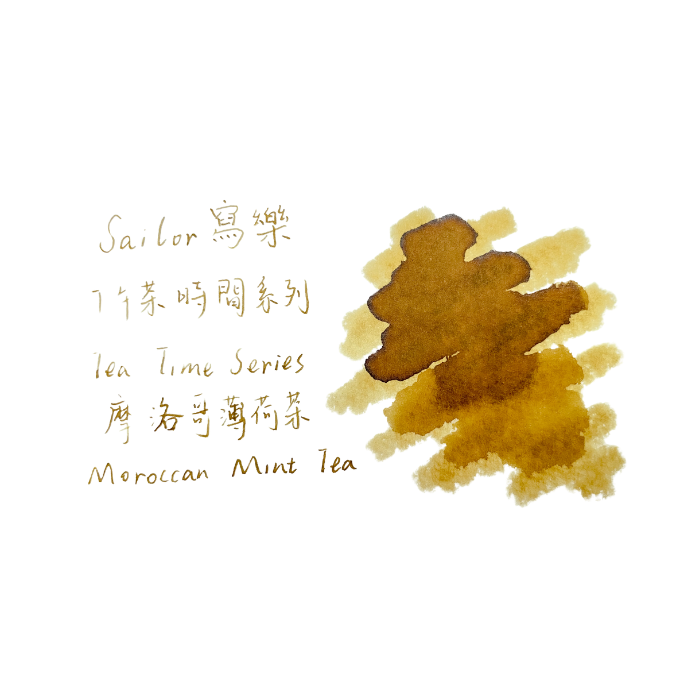 Sailor 寫樂
下午茶時間系列
Tea Time Series
摩洛哥薄荷茶
Moroccan Mint Tea